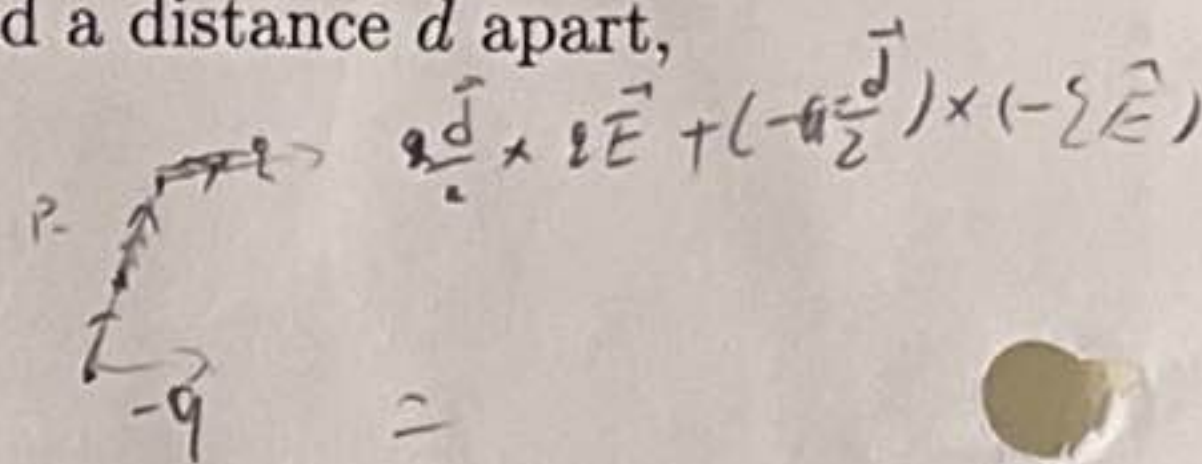 d a distance d apart,
d⃗/2 × qE⃗ + (-d⃗/2) × (-qE⃗)
P
-q
=